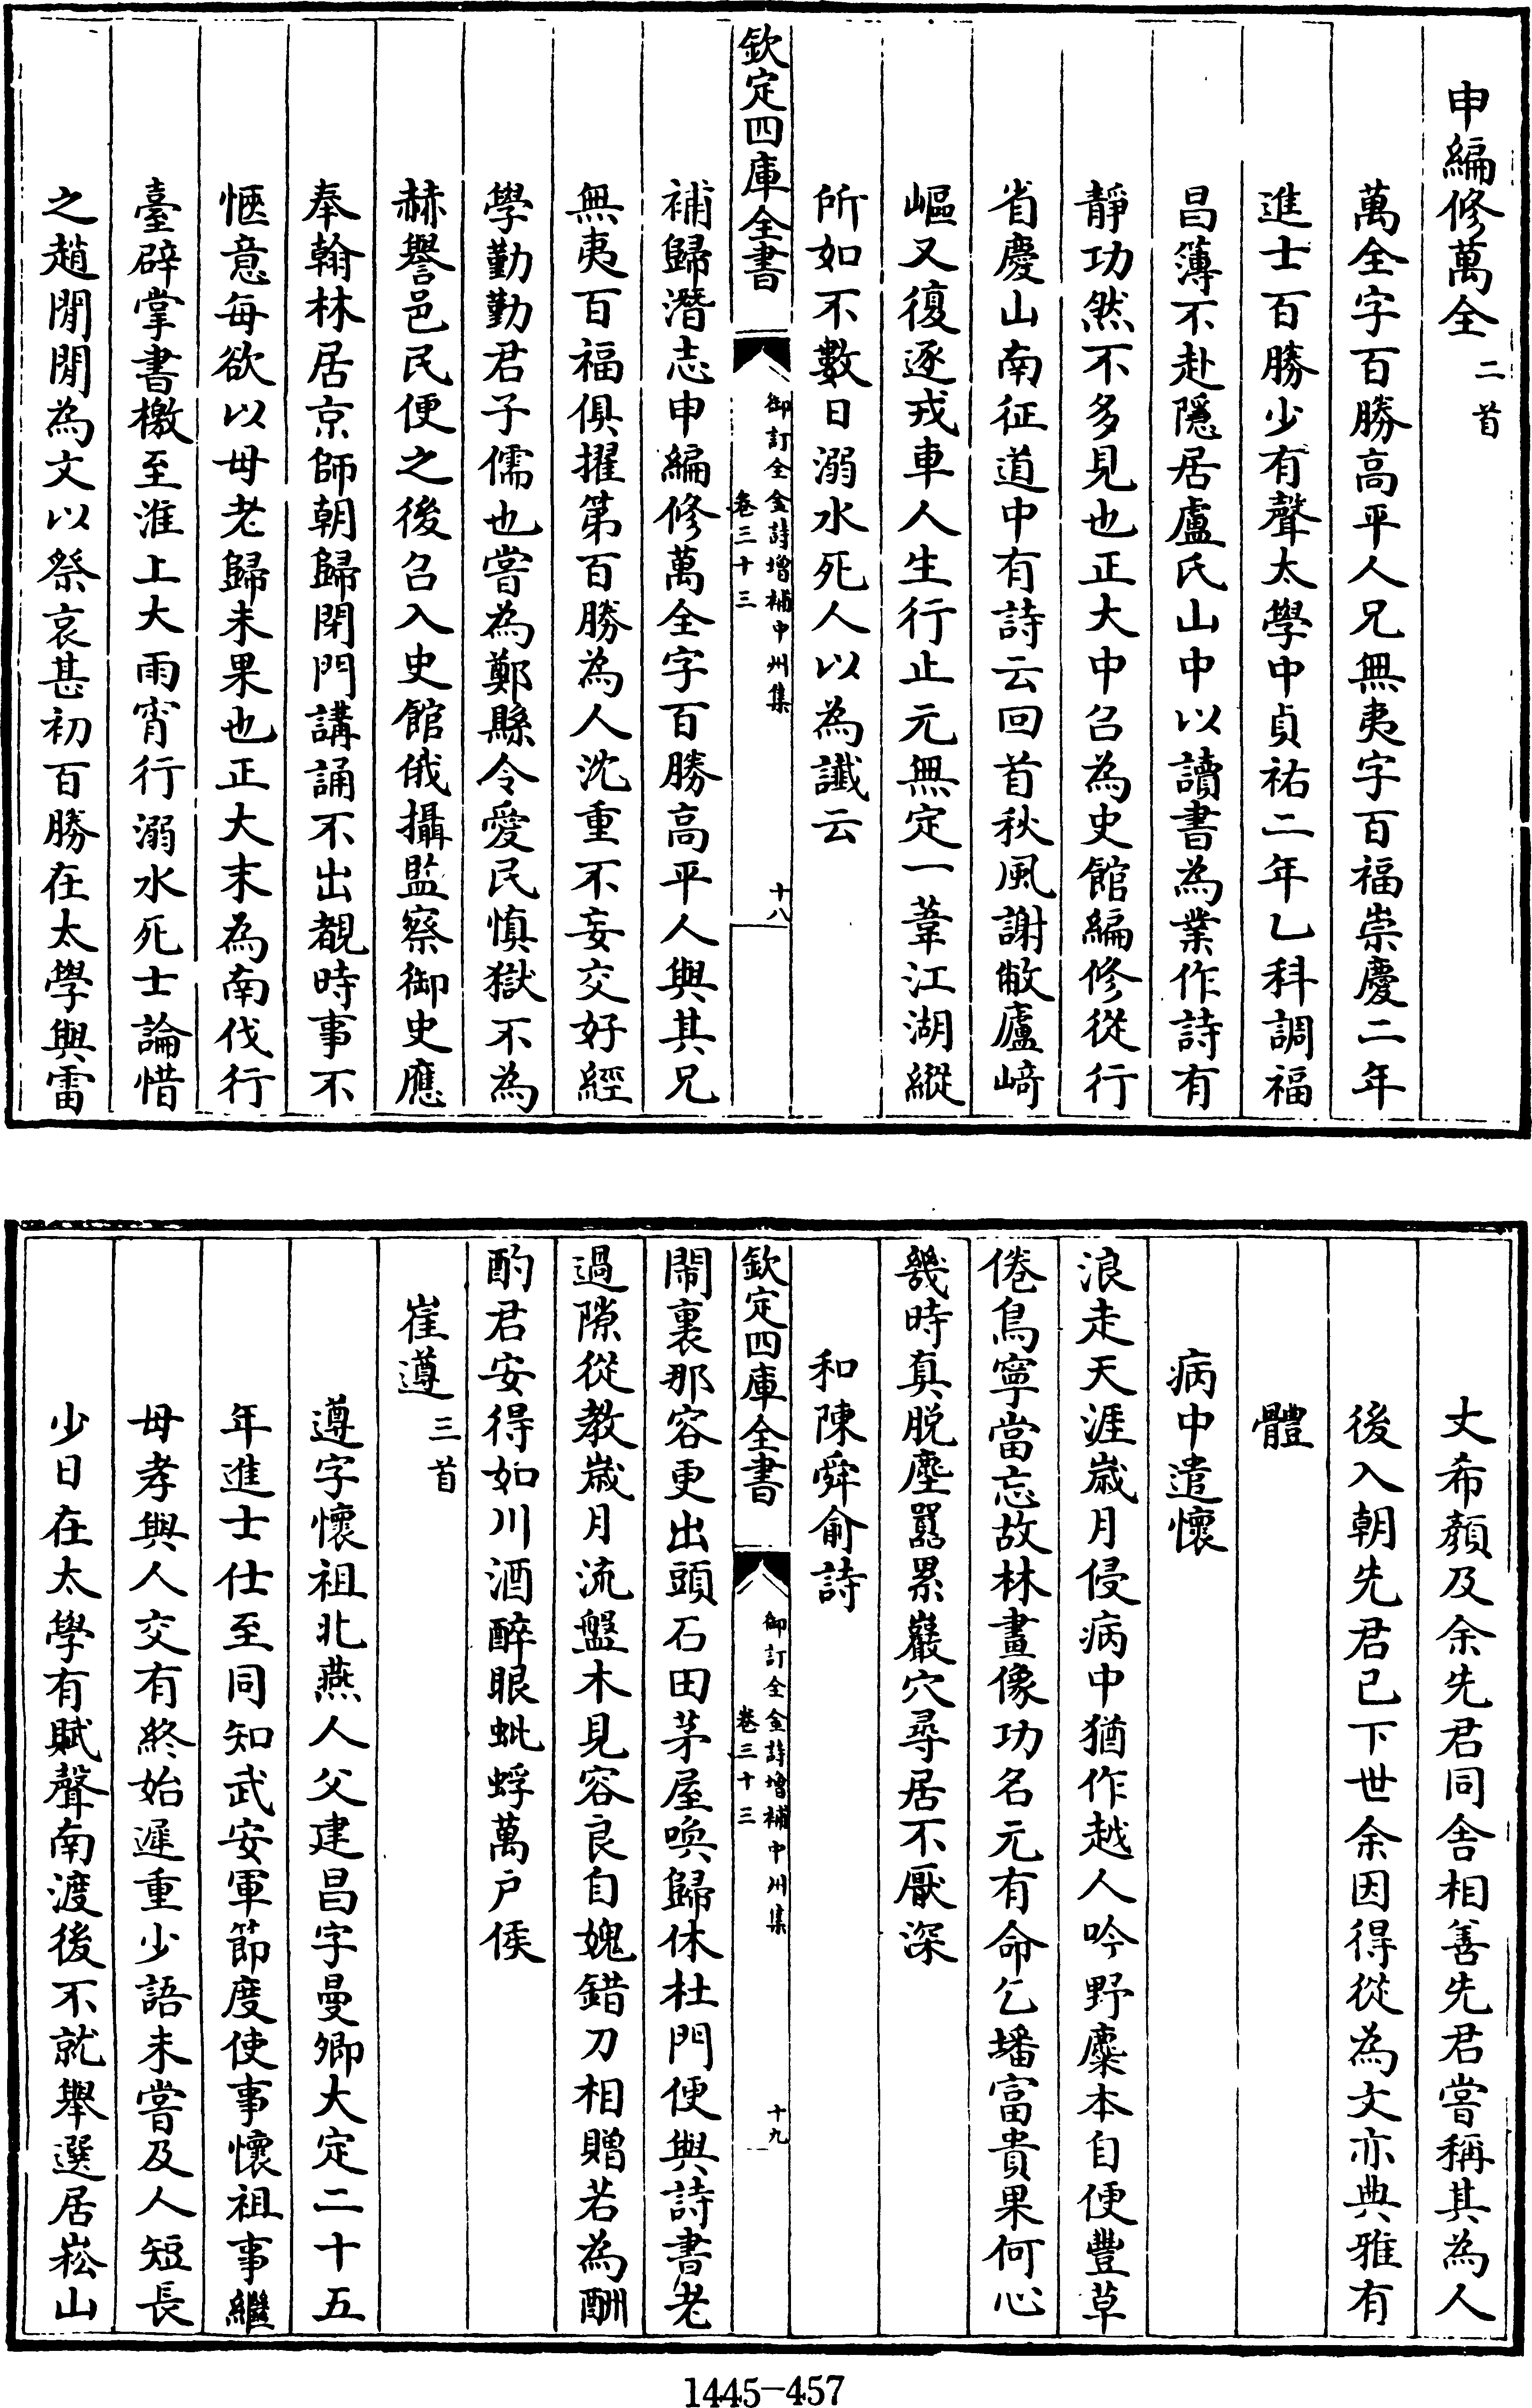 申編修萬全二首
萬全字百勝高平人兄無夷字百福崇慶二年
進士百勝少有聲太學中貞祐二年乙科調福
昌簿不赴隱居盧氏山中以讀書為業作詩有
靜功然不多見也正大中召為史館編修從行
省慶山南征道中有詩云回首秋風謝敝廬崎
嶇又復逐戎車人生行止元無定一葦江湖縱
所如不數日溺水死人以為讖云
欽定四庫全書
御訂全金詩增補中州集
卷三十三
十八
補歸潛志申編修萬全字百勝高平人與其兄
無夷百福俱擢第百勝為人沈重不妄交好經
學勤勤君子儒也嘗為鄭縣令愛民慎獄不為
赫譽邑民便之後召入史館俄攝監察御史應
奉翰林居京師朝歸閉門講誦不出覩時事不
愜意每欲以母老歸未果也正大末為南伐行
臺辟掌書檄至淮上大雨宵行溺水死士論惜
之趙閒閒為文以祭哀甚初百勝在太學與雷
丈希顏及余先君同舍相善先君嘗稱其為人
後入朝先君已下世余因得從為文亦典雅有
體
病中遣懷
浪走天涯歲月侵病中猶作越人吟野麋本自便豐草
倦鳥寧當忘故林畫像功名元有命乞墦富貴果何心
幾時真脱塵囂累巖穴尋居不厭深
和陳舜俞詩
欽定四庫全書
御訂全金詩增補中州集
卷三十三
十九
鬧裏那容更出頭石田茅屋喚歸休杜門便與詩書老
過隙從教歲月流盤木見容良自媿錯刀相贈若為酬
酌君安得如川酒醉眼蚍蜉萬戶侯
崔遵三首
遵字懷祖北燕人父建昌字曼卿大定二十五
年進士仕至同知武安軍節度使事懷祖事繼
母孝與人交有終始遲重少語未嘗及人短長
少日在太學有賦聲南渡後不就舉選居崧山
1445-457